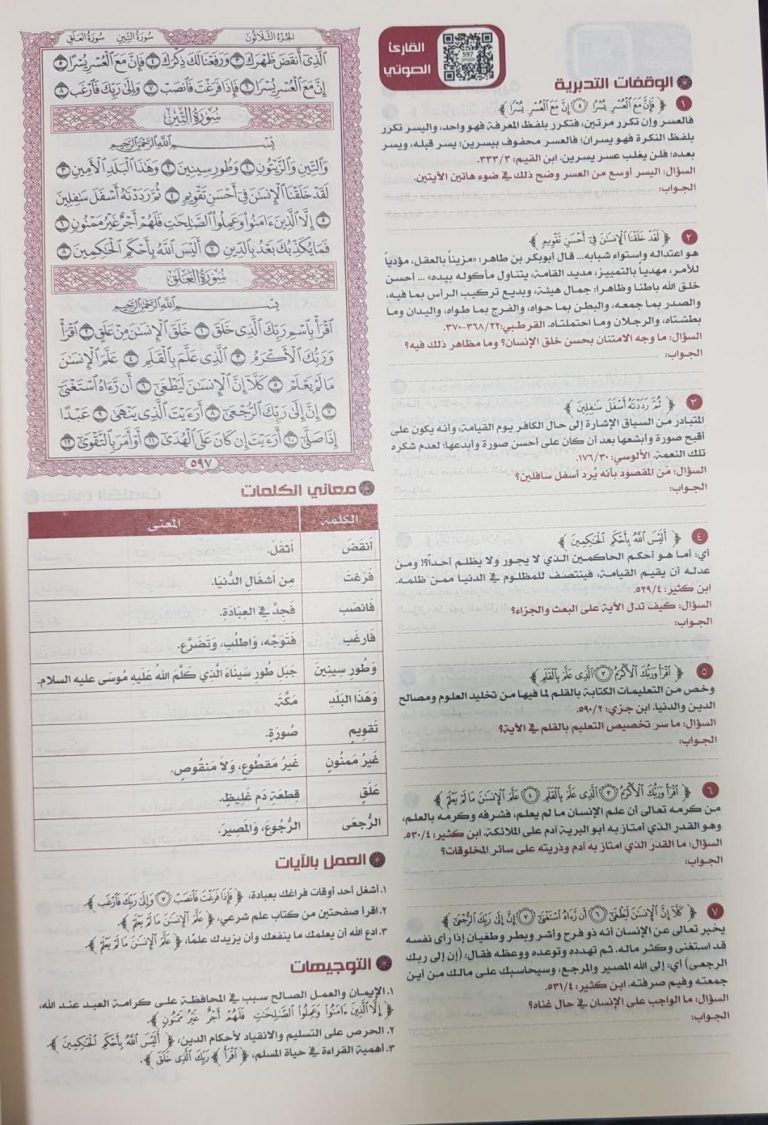 الجزء الثلاثون سورة التين سورة العلق
الَّذِي أَنقَضَ ظَهْرَكَ ٣ وَرَفَعْنَا لَكَ ذِكْرَكَ ٤ فَإِنَّ مَعَ الْعُسْرِ يُسْرًا ٥
إِنَّ مَعَ الْعُسْرِ يُسْرًا ٦ فَإِذَا فَرَغْتَ فَانصَبْ ٧ وَإِلَىٰ رَبِّكَ فَارْغَب ٨
سُورَةُ التِّينِ
بِسْمِ اللَّهِ الرَّحْمَٰنِ الرَّحِيمِ
وَالتِّينِ وَالزَّيْتُونِ ١ وَطُورِ سِينِينَ ٢ وَهَٰذَا الْبَلَدِ الْأَمِينِ ٣
لَقَدْ خَلَقْنَا الْإِنسَٰنَ فِي أَحْسَنِ تَقْوِيمٍ ٤ ثُمَّ رَدَدْنَٰهُ أَسْفَلَ سَٰفِلِينَ
٥ إِلَّا الَّذِينَ ءَامَنُوا وَعَمِلُوا الصَّٰلِحَٰتِ فَلَهُمْ أَجْرٌ غَيْرُ مَمْنُونٍ ٦
فَمَا يُكَذِّبُكَ بَعْدُ بِالدِّينِ ٧ أَلَيْسَ اللَّهُ بِأَحْكَمِ الْحَٰكِمِينَ ٨
سُورَةُ الْعَلَقِ
بِسْمِ اللَّهِ الرَّحْمَٰنِ الرَّحِيمِ
اقْرَأْ بِاسْمِ رَبِّكَ الَّذِي خَلَقَ ١ خَلَقَ الْإِنسَٰنَ مِنْ عَلَقٍ ٢ اقْرَأْ
وَرَبُّكَ الْأَكْرَمُ ٣ الَّذِي عَلَّمَ بِالْقَلَمِ ٤ عَلَّمَ الْإِنسَٰنَ
مَا لَمْ يَعْلَمْ ٥ كَلَّا إِنَّ الْإِنسَٰنَ لَيَطْغَىٰ ٦ أَن رَّءَاهُ اسْتَغْنَىٰ
٧ إِنَّ إِلَىٰ رَبِّكَ الرُّجْعَىٰ ٨ أَرَءَيْتَ الَّذِي يَنْهَىٰ ٩ عَبْدًا
إِذَا صَلَّىٰ ١٠ أَرَءَيْتَ إِن كَانَ عَلَى الْهُدَىٰ ١١ أَوْ أَمَرَ بِالتَّقْوَىٰ ١٢
٥٩٧
معاني الكلمات
الكلمة المعنى
أَنقَضَ أَثْقَلَ.
فَرَغْتَ مِن أَشْغَالِ الدُّنْيَا.
فَانصَب فَجِدَّ فِي العِبَادَةِ.
فَارغَب فَتَوَجَّه، وَاطْلُب، وَتَضَرَّع.
وَطُورِ سِينِينَ جَبَلِ طُورِ سَيْنَاءَ الَّذِي كَلَّمَ اللهُ عَلَيهِ مُوسَى عليه السلام.
وَهَذَا البَلَدِ مَكَّةَ.
تَقوِيمٍ صُورَةٍ.
غَيرُ مَمنُونٍ غَيرُ مَقطُوعٍ، وَلاَ مَنقُوصٍ.
عَلَقٍ قِطعَةِ دَمٍ غَلِيظٍ.
الرُّجعَى الرُّجُوعَ، وَالمَصِيرَ.
العمل بالآيات
١. أشغل أحد أوقات فراغك بعبادة، ﴿ فَإِذَا فَرَغْتَ فَانصَبْ ٧ وَإِلَىٰ رَبِّكَ فَارْغَب ﴾.
٢. اقرأ صفحتين من كتاب علم شرعي، ﴿ عَلَّمَ الْإِنسَٰنَ مَا لَمْ يَعْلَمْ ﴾.
٣. ادع الله أن يعلمك ما ينفعك وأن يزيدك علمًا، ﴿ عَلَّمَ الْإِنسَٰنَ مَا لَمْ يَعْلَمْ ﴾.
التوجيهات
١. الإيمان والعمل الصالح سبب في المحافظة على كرامة العبد عند الله،
﴿ إِلَّا الَّذِينَ ءَامَنُوا وَعَمِلُوا الصَّٰلِحَٰتِ فَلَهُمْ أَجْرٌ غَيْرُ مَمْنُونٍ ﴾.
٢. الحرص على التسليم والانقياد لأحكام الدين، ﴿ أَلَيْسَ اللَّهُ بِأَحْكَمِ الْحَٰكِمِينَ ﴾.
٣. أهمية القراءة في حياة المسلم، ﴿ اقْرَأْ بِاسْمِ رَبِّكَ الَّذِي خَلَقَ ﴾.
القارئ
الصوتي
597
الوقفات التدبرية
١ ﴿ فَإِنَّ مَعَ الْعُسْرِ يُسْرًا ٥ إِنَّ مَعَ الْعُسْرِ يُسْرًا ﴾
فالعسر وإن تكرر مرتين، فتكرر بلفظ المعرفة فهو واحد، واليسر تكرر
بلفظ النكرة فهو يسران؛ فالعسر محفوف بيسرين: يسر قبله، ويسر
بعده؛ فلن يغلب عسر يسرين. ابن القيم: ٣/ ٣٣٣.
السؤال: اليسر أوسع من العسر وضح ذلك في ضوء هاتين الآيتين.
الجواب:
٢ ﴿ لَقَدْ خَلَقْنَا الْإِنسَٰنَ فِي أَحْسَنِ تَقْوِيمٍ ﴾
هو اعتداله واستواء شبابه... قال أبوبكر بن طاهر: «مزيناً بالعقل، مؤدياً
للأمر، مهدياً بالتمييز، مديد القامة، يتناول مأكوله بيده» ... أحسن
خلق الله باطناً وظاهراً: جمال هيئة، وبديع تركيب الرأس بما فيه،
والصدر بما جمعه، والبطن بما حواه، والفرج بما طواه، واليدان وما
بطشتاه، والرجلان وما احتملتاه. القرطبي: ٢٢/ ٣٦٨-٣٧٠.
السؤال: ما وجه الامتنان بحسن خلق الإنسان؟ وما مظاهر ذلك فيه؟
الجواب:
٣ ﴿ ثُمَّ رَدَدْنَٰهُ أَسْفَلَ سَٰفِلِينَ ﴾
المتبادر من السياق الإشارة إلى حال الكافر يوم القيامة، وأنه يكون على
أقبح صورة وأبشعها بعد أن كان على أحسن صورة وأبدعها؛ لعدم شكره
تلك النعمة. الألوسي: ٣٠/ ١٧٦.
السؤال: مَن المقصود بأنه يُرد أسفل سافلين؟
الجواب:
٤ ﴿ أَلَيْسَ اللَّهُ بِأَحْكَمِ الْحَٰكِمِينَ ﴾
أي: أما هو أحكم الحاكمين الذي لا يجور ولا يظلم أحداً؟! ومن
عدله أن يقيم القيامة، فينتصف للمظلوم في الدنيا ممن ظلمه.
ابن كثير: ٤/ ٥٢٩.
السؤال: كيف تدل الآية على البعث والجزاء؟
الجواب:
٥ ﴿ اقْرَأْ وَرَبُّكَ الْأَكْرَمُ ٣ الَّذِي عَلَّمَ بِالْقَلَمِ ﴾
وخص من التعليمات الكتابة بالقلم لما فيها من تخليد العلوم ومصالح
الدين والدنيا. ابن جزي: ٢/ ٥٩٠.
السؤال: ما سر تخصيص التعليم بالقلم في الآية؟
الجواب:
٦ ﴿ اقْرَأْ وَرَبُّكَ الْأَكْرَمُ ٣ الَّذِي عَلَّمَ بِالْقَلَمِ ٤ عَلَّمَ الْإِنسَٰنَ مَا لَمْ يَعْلَمْ ﴾
من كرمه تعالى أن علم الإنسان ما لم يعلم، فشرفه وكرمه بالعلم،
وهو القدر الذي امتاز به أبو البرية آدم على الملائكة. ابن كثير: ٤/ ٥٣٠.
السؤال: ما القدر الذي امتاز به آدم وذريته على سائر المخلوقات؟
الجواب:
٧ ﴿ كَلَّا إِنَّ الْإِنسَٰنَ لَيَطْغَىٰ ٦ أَن رَّءَاهُ اسْتَغْنَىٰ ٧ إِنَّ إِلَىٰ رَبِّكَ الرُّجْعَىٰ ﴾
يخبر تعالى عن الإنسان أنه ذو فرح وأشر وبطر وطغيان إذا رأى نفسه
قد استغنى وكثر ماله. ثم تهدده وتوعده ووعظه فقال: (إن إلى ربك
الرجعى) أي: إلى الله المصير والمرجع، وسيحاسبك على مالك من أين
جمعته وفيم صرفته. ابن كثير: ٤/ ٥٣١.
السؤال: ما الواجب على الإنسان في حال غناه؟
الجواب: